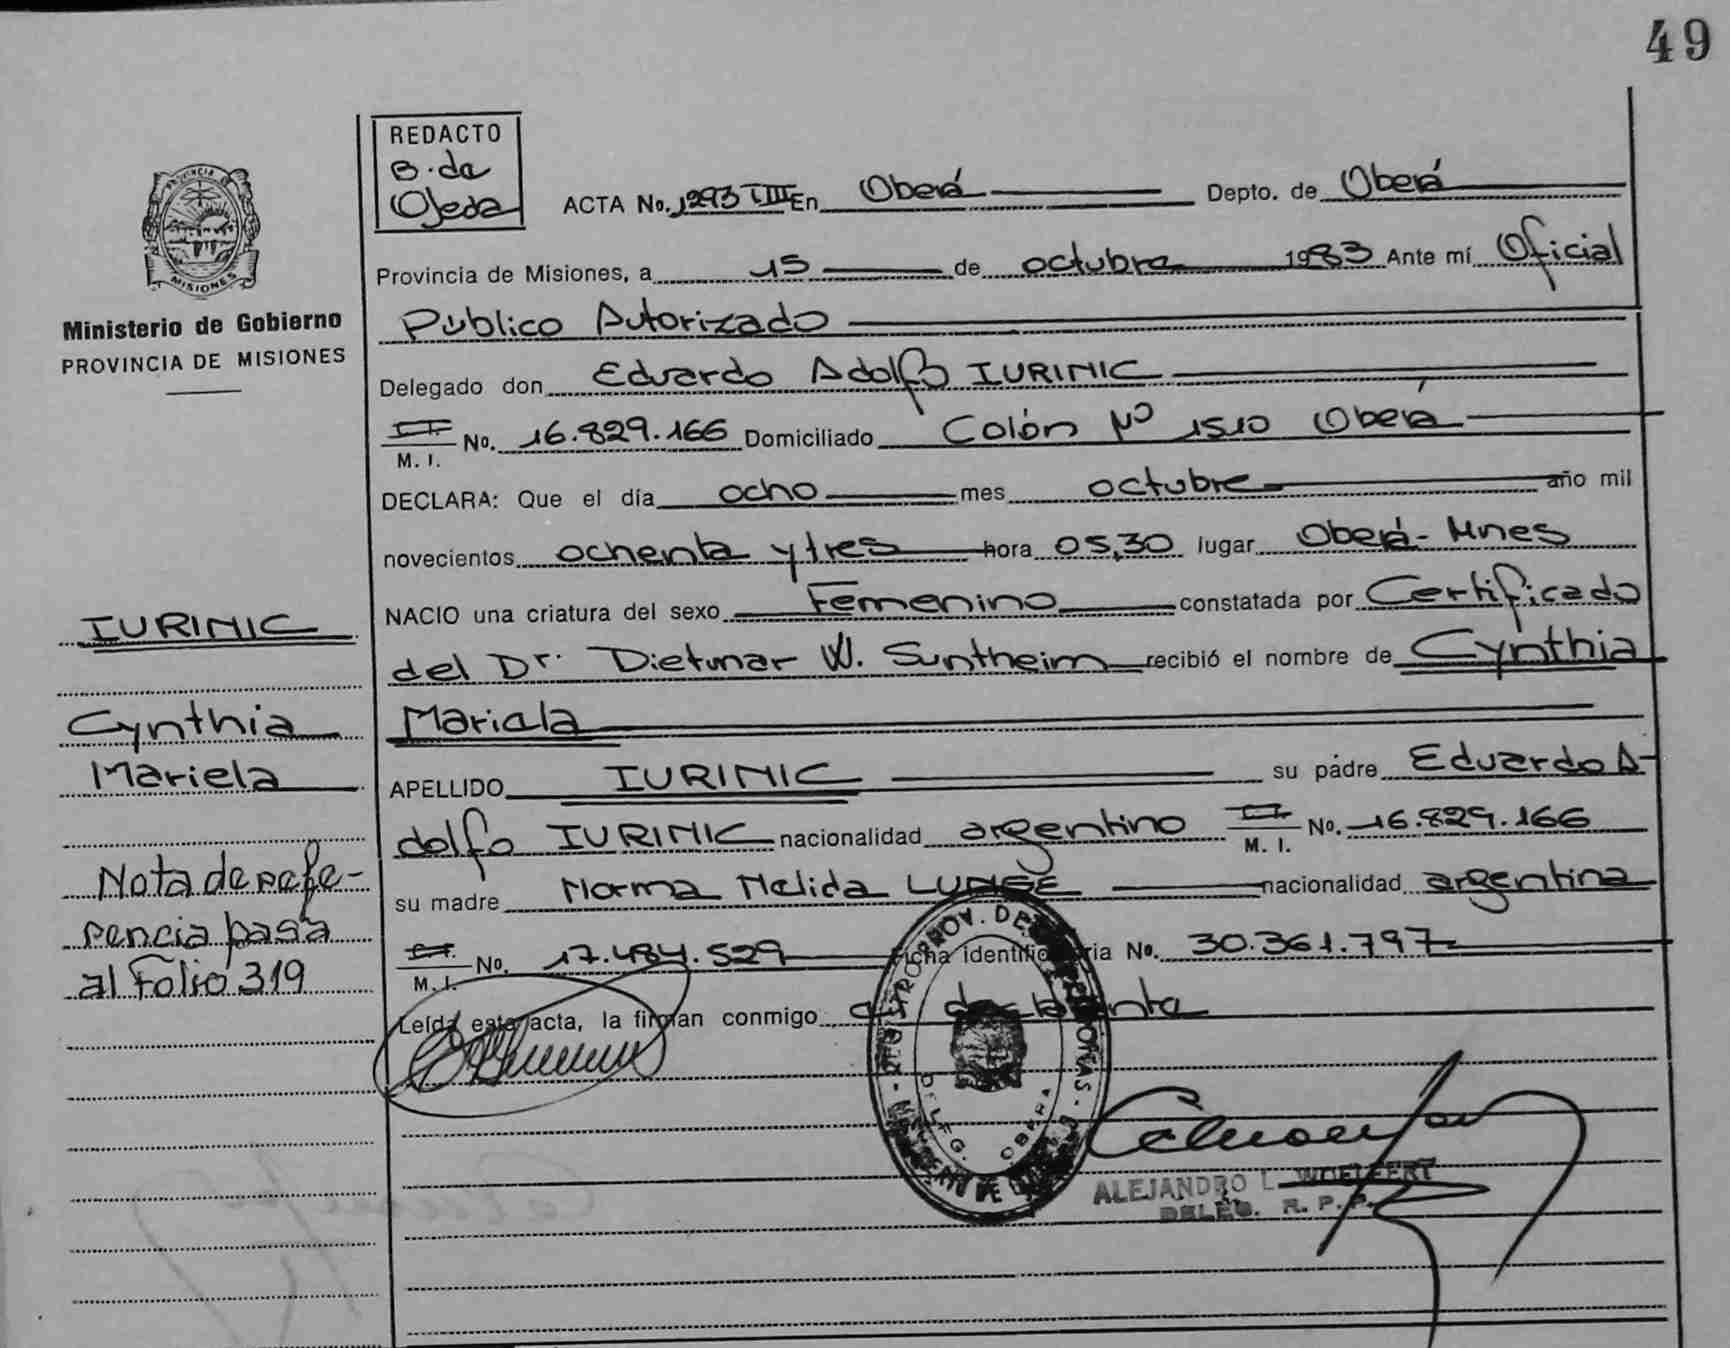 49
REDACTO
B. de
Ojeda
ACTA No. 1293 TIII En Oberá Depto. de Oberá
Provincia de Misiones, a 15 de octubre 1983 Ante mí Oficial
Público Autorizado
Delegado don Eduardo Adolfo IURINIC
C.I. No. 16.829.166 Domiciliado Colón Nº 1510 Oberá
M. I.
DECLARA: Que el día ocho mes octubre año mil
novecientos ochenta y tres hora 05,30 lugar Oberá- Mnes
NACIO una criatura del sexo Femenino constatada por Certificado
del Dr. Dietmar W. Suntheim recibió el nombre de Cynthia
Mariela
APELLIDO IURINIC su padre Eduardo A-
dolfo IURINIC nacionalidad argentino C.I. No. 16.829.166
M. I.
su madre Norma Nelida LUNGE nacionalidad argentina
C.I. No. 17.484.529 Ficha identificatoria No. 30.361.797
M. I.
Leída esta acta, la firman conmigo el declarante
PROVINCIA DE
MISIONES
Ministerio de Gobierno
PROVINCIA DE MISIONES
IURINIC
Cynthia
Mariela
Nota de refe-
rencia pasa
al Folio 319
DELEG. OBERA
ALEJANDRO L. WOELFERT
DELEG. R. P. P.